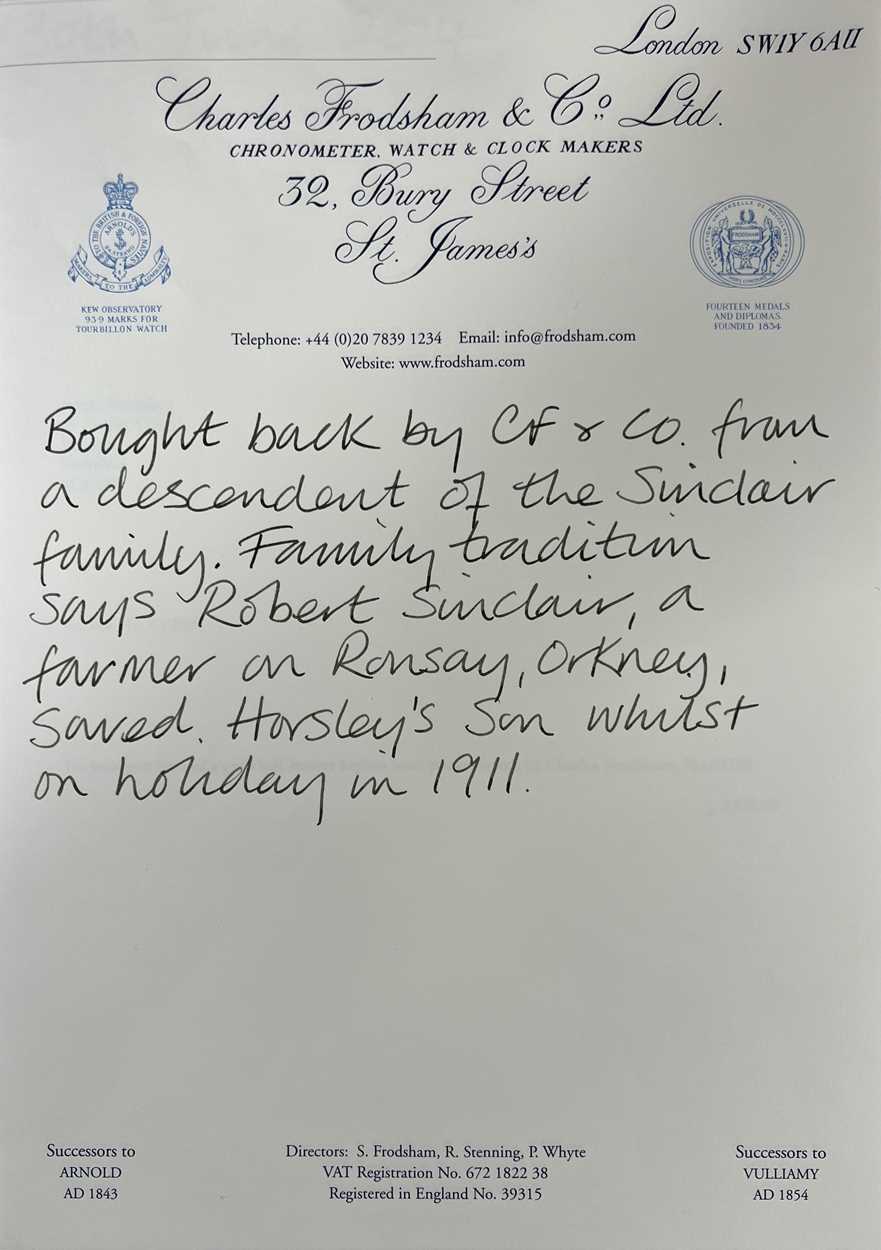 London SW1Y 6AU
Charles Frodsham & Co. Ltd.
CHRONOMETER, WATCH & CLOCK MAKERS
32, Bury Street
St. James's
ARNOLD'S
TO THE ADMIRALTY
KEW OBSERVATORY
93·9 MARKS FOR
TOURBILLON WATCH
FRODSHAM
FOURTEEN MEDALS
AND DIPLOMAS.
FOUNDED 1834
Telephone: +44 (0)20 7839 1234 Email: info@frodsham.com
Website: www.frodsham.com
Bought back by CF & Co. from
a descendent of the Sinclair
family. Family tradition
says Robert Sinclair, a
farmer on Ronsay, Orkney,
saved. Horsley's Son whilst
on holiday in 1911.
Successors to
ARNOLD
AD 1843
Directors: S. Frodsham, R. Stenning, P. Whyte
VAT Registration No. 672 1822 38
Registered in England No. 39315
Successors to
VULLIAMY
AD 1854